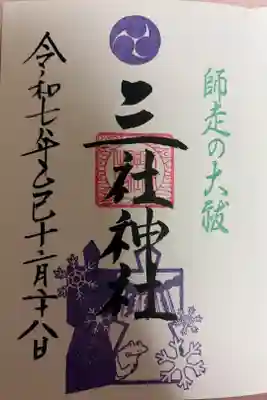 師走の大祓
三社神社
令和七年乙巳十二月廿八日